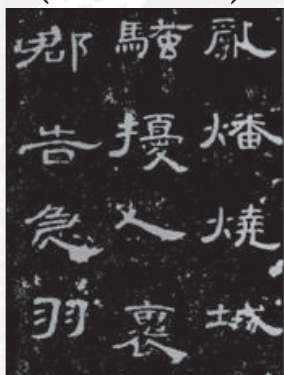 亂燔燒城
騷擾人裹
郡告急羽